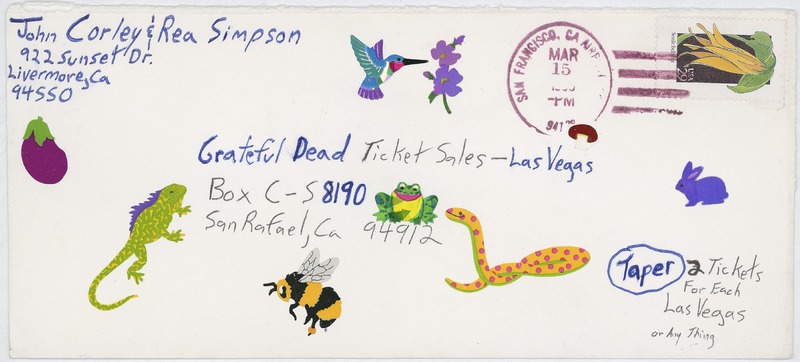 John Corley & Rea Simpson
922 Sunset Dr.
Livermore, Ca
94550
SAN FRANCISCO, CA
MAR
15
PM
29
USA
Grateful Dead Ticket Sales - Las Vegas
Box C-S 8190
San Rafael, Ca 94912
Taper 2 Tickets
For Each
Las Vegas
or Any Thing